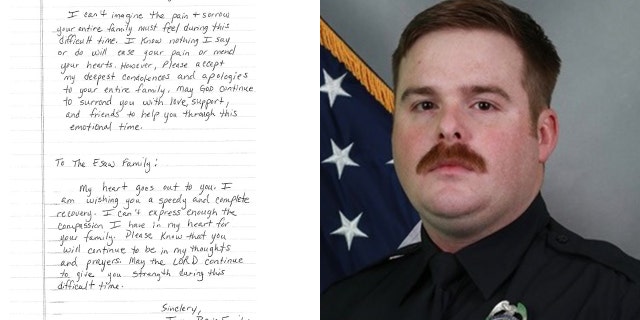 I can't imagine the pain + sorrow
your entire family must feel during this
difficult time. I know nothing I say
or do will ease your pain or mend
your hearts. However, please accept
my deepest condolences and apologies
to your entire family. May God continue
to surrond you with love, support,
and friends to help you through this
emotional time.
To The Esaw Family:
My heart goes out to you. I
am wishing you a speedy and complete
recovery. I can't express enough the
compassion I have in my heart for
your family. Please know that you
will continue to be in my thoughts
and prayers. May the LORD continue
to give you strength during this
difficult time.
Sinclery,